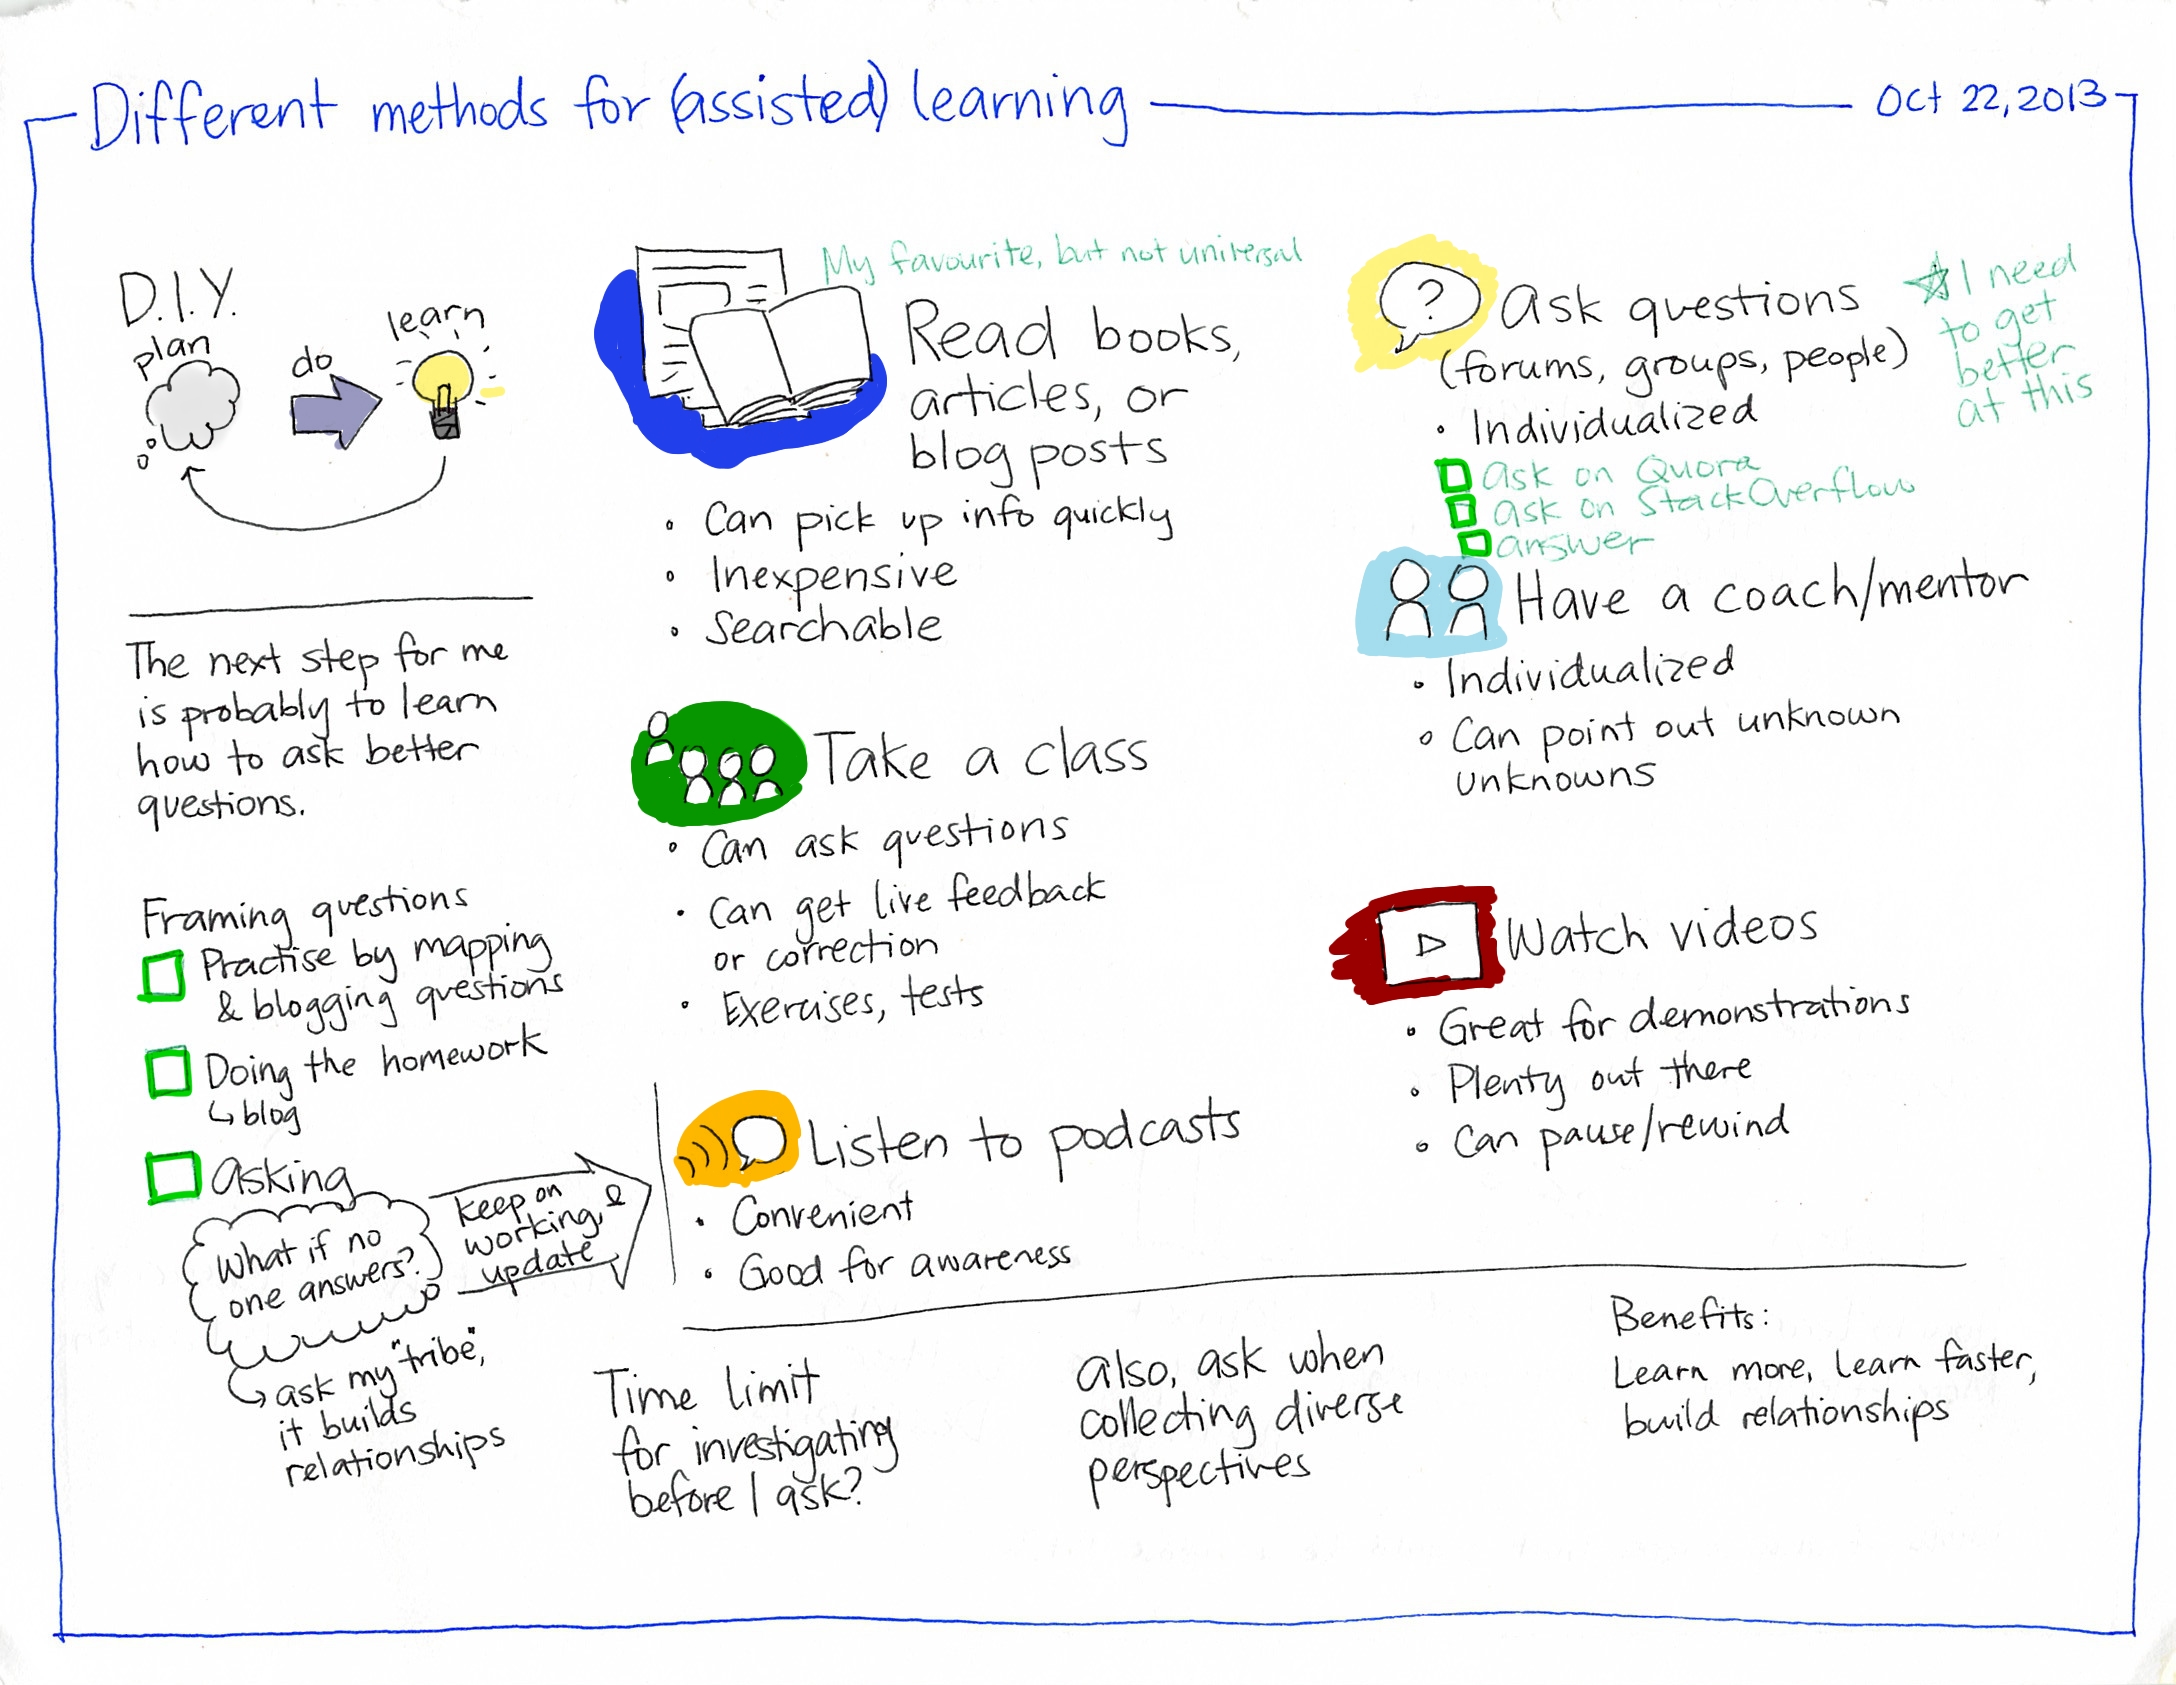 Different methods for (assisted) learning
Oct 22, 2013
D.I.Y.
plan
do
learn
The next step for me
is probably to learn
how to ask better
questions.
Framing questions
Practise by mapping
& blogging questions
Doing the homework
↳ blog
Asking
What if no
one answers?
keep on
working, &
update
↳ ask my "tribe",
it builds
relationships
My favourite, but not universal
Read books,
articles, or
blog posts
• Can pick up info quickly
• Inexpensive
• Searchable
Take a class
• Can ask questions
• Can get live feedback
or correction
• Exercises, tests
Listen to podcasts
• Convenient
• Good for awareness
?
Ask questions
(forums, groups, people)
☆ I need
to get
better
at this
• Individualized
ask on Quora
ask on StackOverflow
answer
Have a coach/mentor
• Individualized
• Can point out unknown
unknowns
Watch videos
• Great for demonstrations
• Plenty out there
• Can pause/rewind
Time limit
for investigating
before I ask?
Also, ask when
collecting diverse
perspectives
Benefits:
Learn more, learn faster,
build relationships